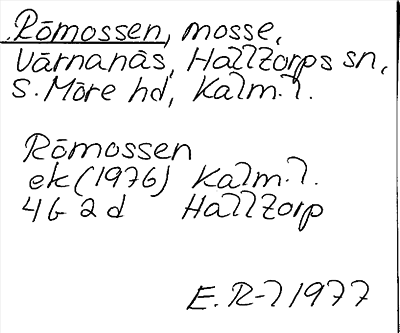 Römossen, mosse,
Värnanäs, Halltorps sn,
S. Möre hd, Kalm. l.
Römossen
ek (1976) Kalm. l.
4G 2d Halltorp
E. R-l 1977